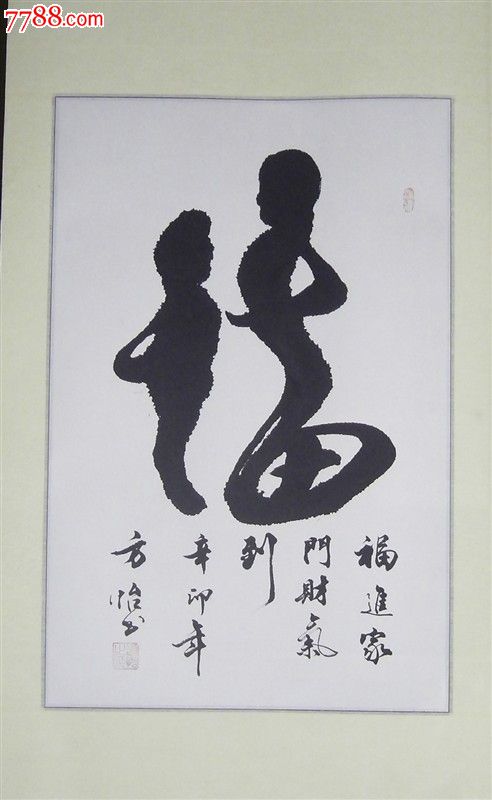 7788.com
福
福進家
門財氣
到
辛卯年
方怡书